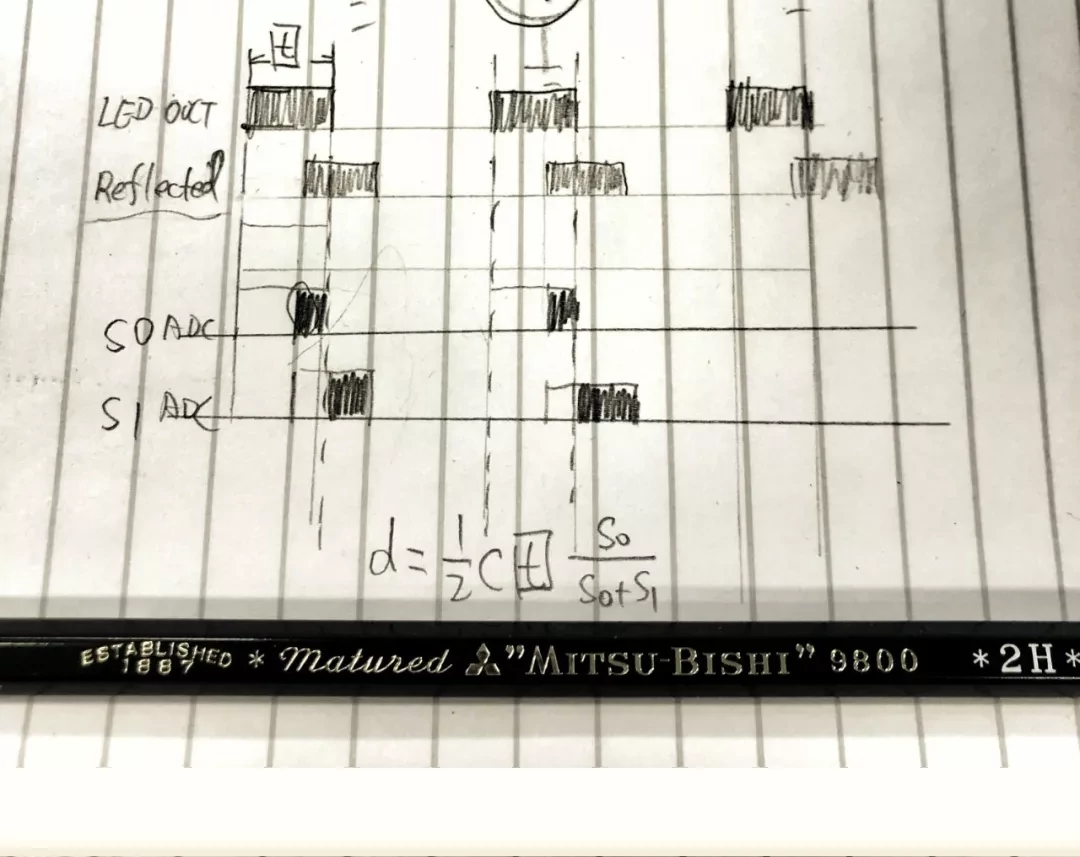 t
LED OUT
Reflected
S0 ADC
S1 ADC
d = 1/2 C t S0/(S0+S1)
ESTABLISHED 1887 * Matured "MITSU-BISHI" 9800 *2H*